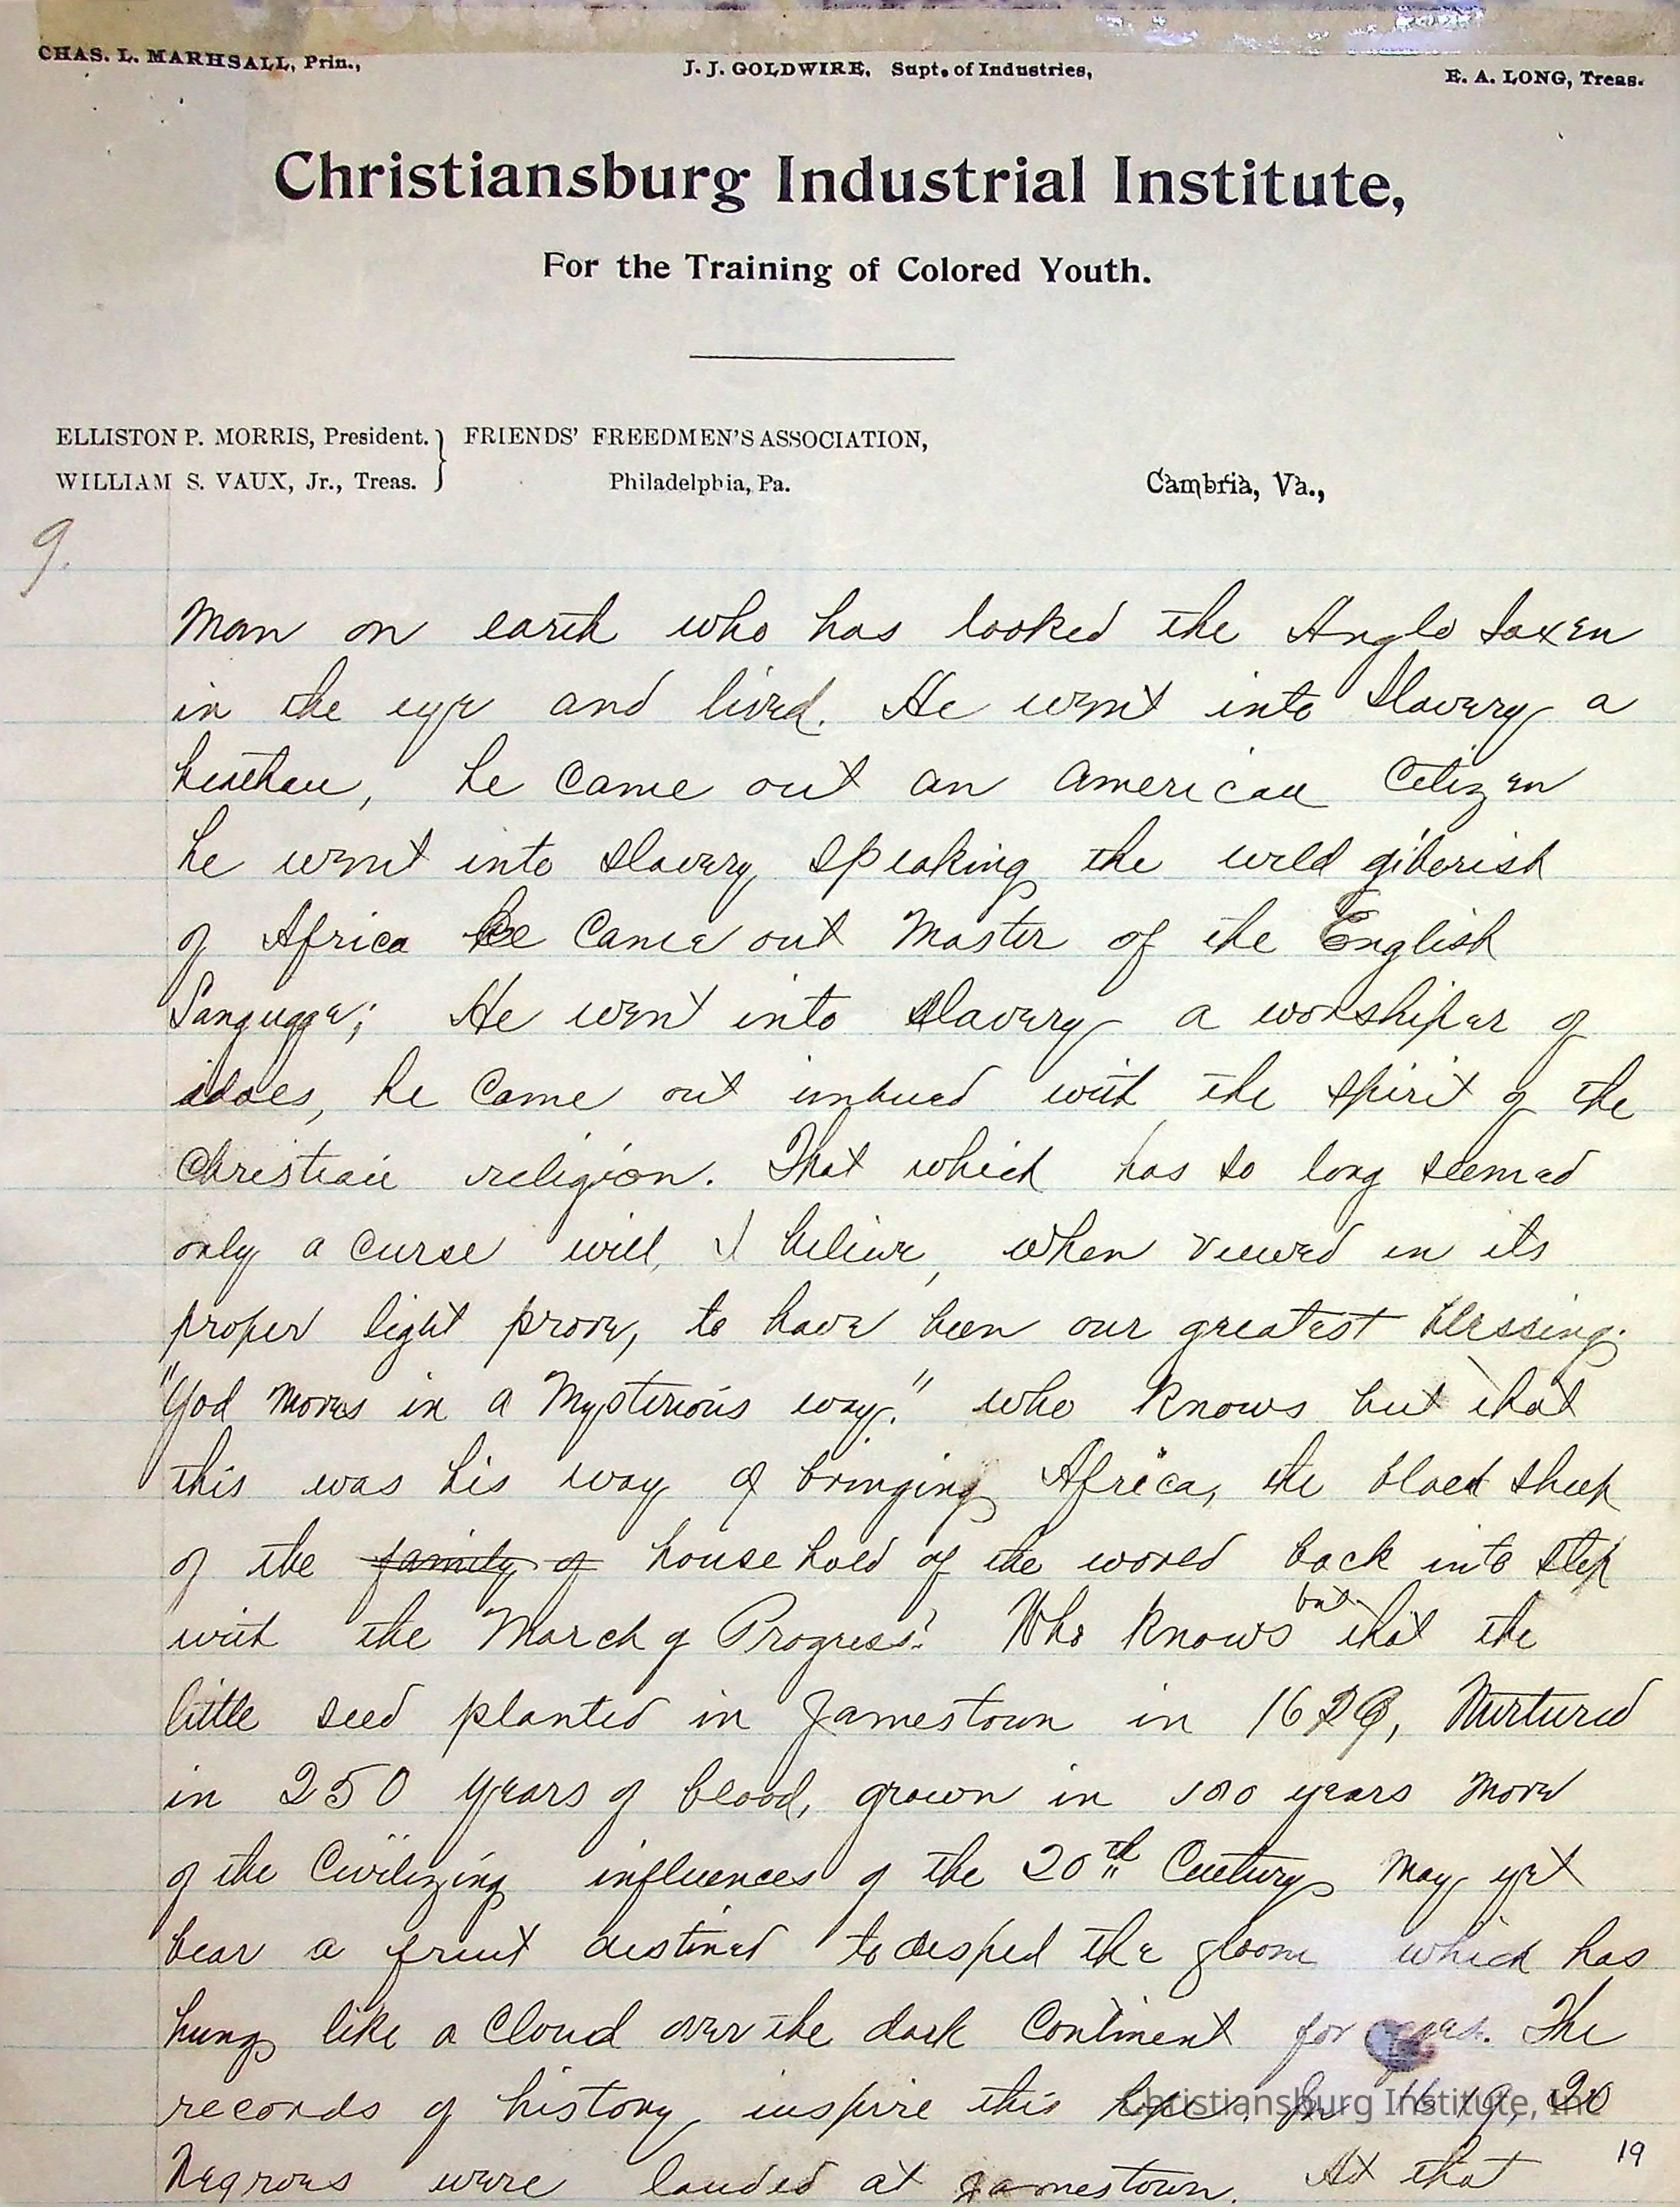 CHAS. L. MARHSALL, Prin.,
J. J. GOLDWIRE, Supt. of Industries,
E. A. LONG, Treas.
Christiansburg Industrial Institute,
For the Training of Colored Youth.
ELLISTON P. MORRIS, President. } FRIENDS' FREEDMEN'S ASSOCIATION,
WILLIAM S. VAUX, Jr., Treas. Philadelphia, Pa.
Cambria, Va.,
9.
Man on earth who has looked the Anglo Saxen
in the eye and lived. He went into Slavery a
heathen, he came out an American Citizen
he went into slavery speaking the wild giberish
of Africa he came out Master of the English
Langugge; He went into slavery a worshiper of
idols, he came out imbued with the spirit of the
Christian religion. That which has so long seemed
only a curse will, I believe, when viewed in its
proper light prove, to have been our greatest blessing.
"God moves in a Mysterious way." who knows but that
this was his way of bringing Africa, the black sheep
of the family of house hold of the world back into step
with the March of Progress? Who knows but that the
little seed planted in Jamestown in 1629, Nurtured
in 250 years of blood, grown in 100 years more
of the Civilizing influences of the 20th Century may yet
bear a fruit destined to dispel the gloom which has
hung like a cloud over the dark Continent for ages. The
records of history inspire this hope. In 1619, 20
Negroes were landed at Jamestown. At that
19
Christiansburg Institute, Inc